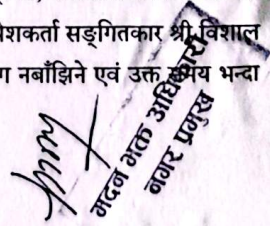 शकर्ता सङ्गितकार श्री विशाल
ग नबाँझिने एवं उक्त समय भन्दा
मदन भक्त अधिकारी
नगर प्रमुख